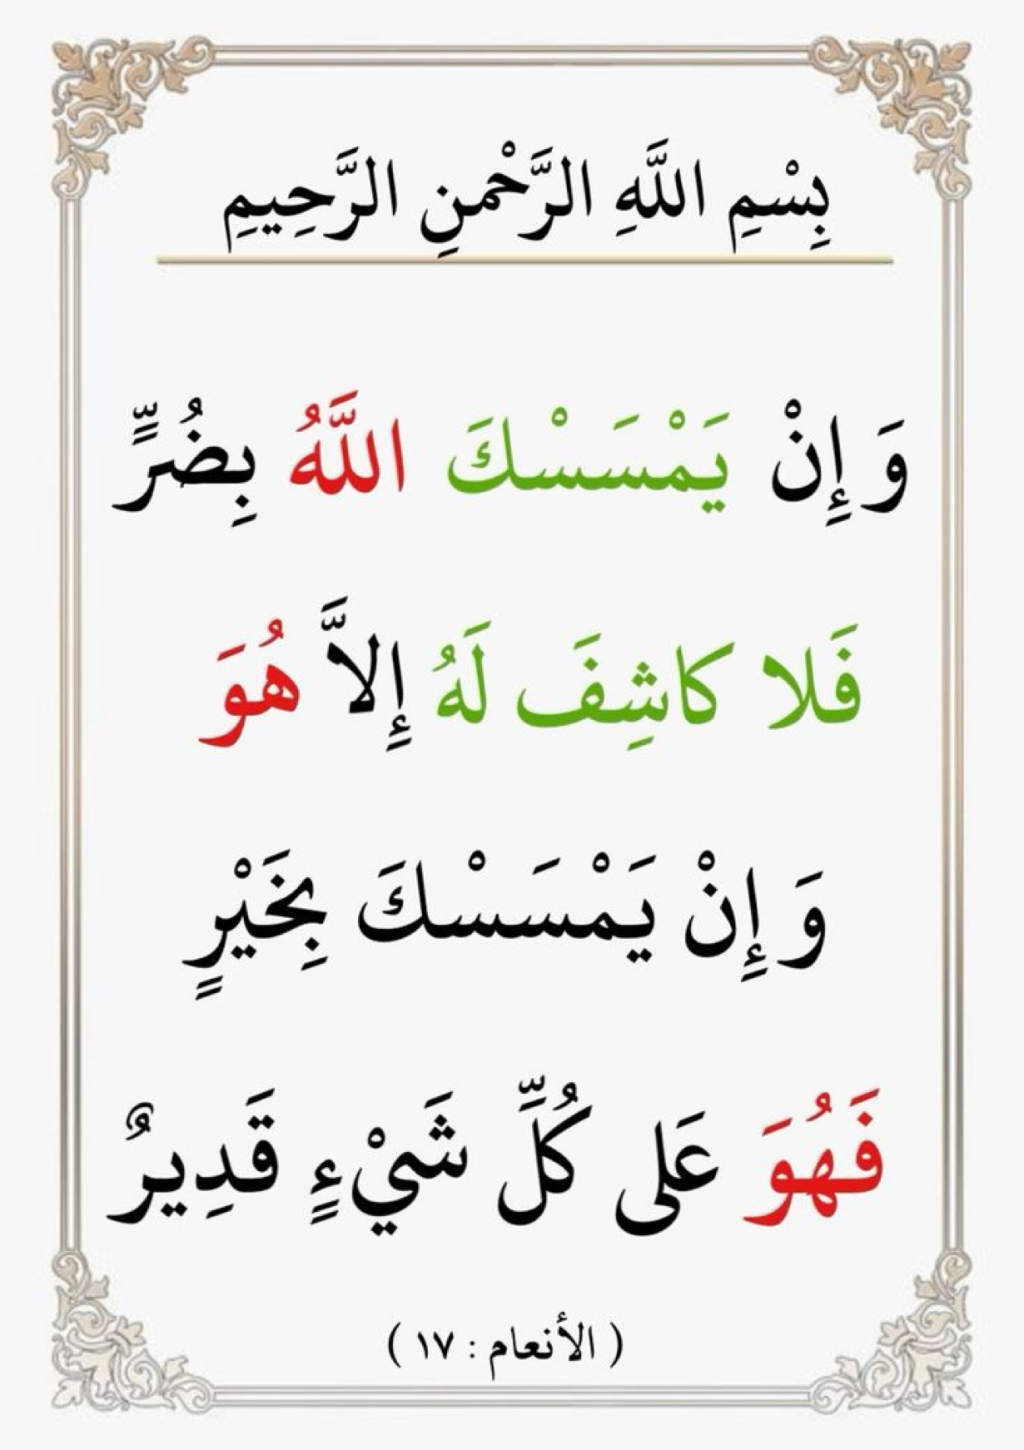 بِسْمِ اللَّهِ الرَّحْمنِ الرَّحِيمِ
وَ إِنْ يَمْسَسْكَ اللَّهُ بِضُرٍّ
فَلا كاشِفَ لَهُ إِلاَّ هُوَ
وَ إِنْ يَمْسَسْكَ بِخَيْرٍ
فَهُوَ عَلى كُلِّ شَيْءٍ قَدِيرٌ
( الأنعام : ١٧ )